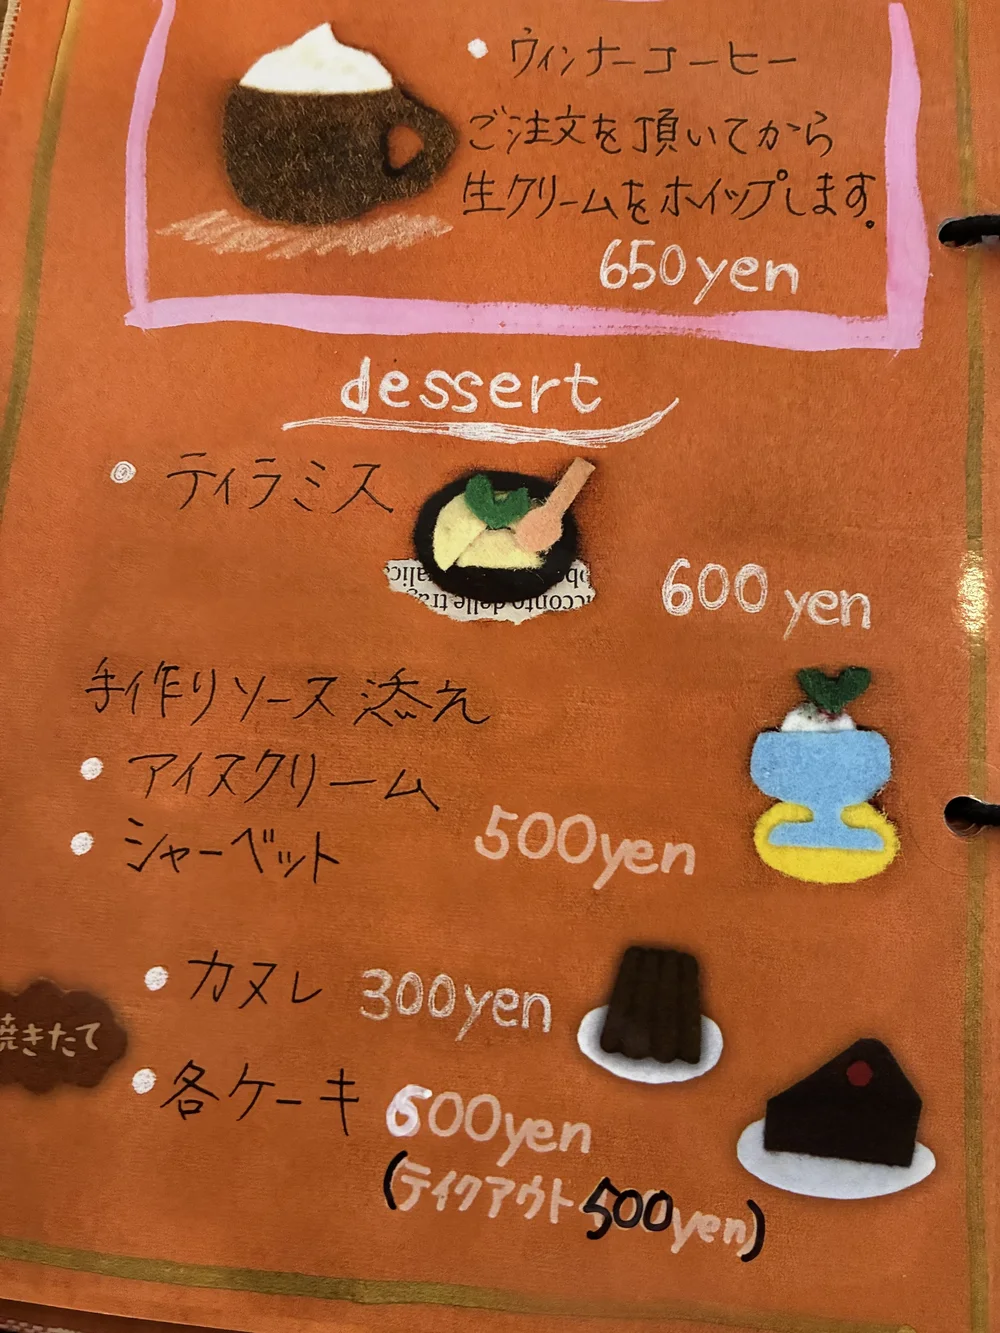 ・ウィンナーコーヒー
ご注文を頂いてから
生クリームをホイップします。
650yen
dessert
・ティラミス
600 yen
手作りソース添え
・アイスクリーム
・シャーベット
500yen
・カヌレ 300yen
焼きたて
・各ケーキ 600yen
(テイクアウト 500yen)